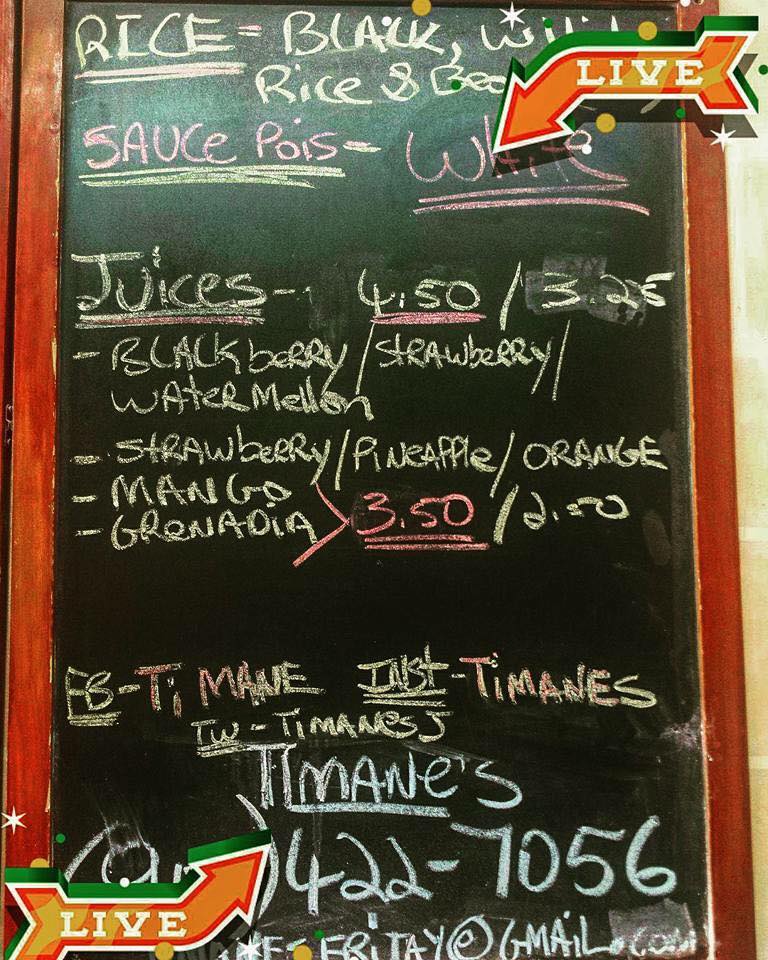 RICE = BLACK,
Rice &
LIVE
SAUCE POIS - White
JUICES - 4.50 / 3.25
- BLACKberRy / STRAWberRy /
WATERMellon
- STRAWberRy / PINEAPPle / ORANGE
- MANGO
- GRENADIA 3.50 / 2.50
FB - Ti MANE INST - TiMANES
TW - TiMANESJ
TiMANE'S
422-7056
FRiTAY@GMAiL.COM
LIVE